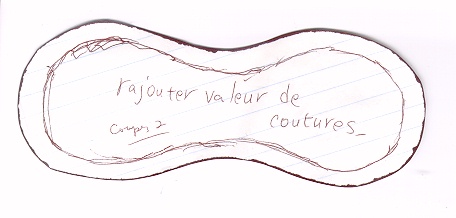 rajouter valeur de
coutures
couper 2